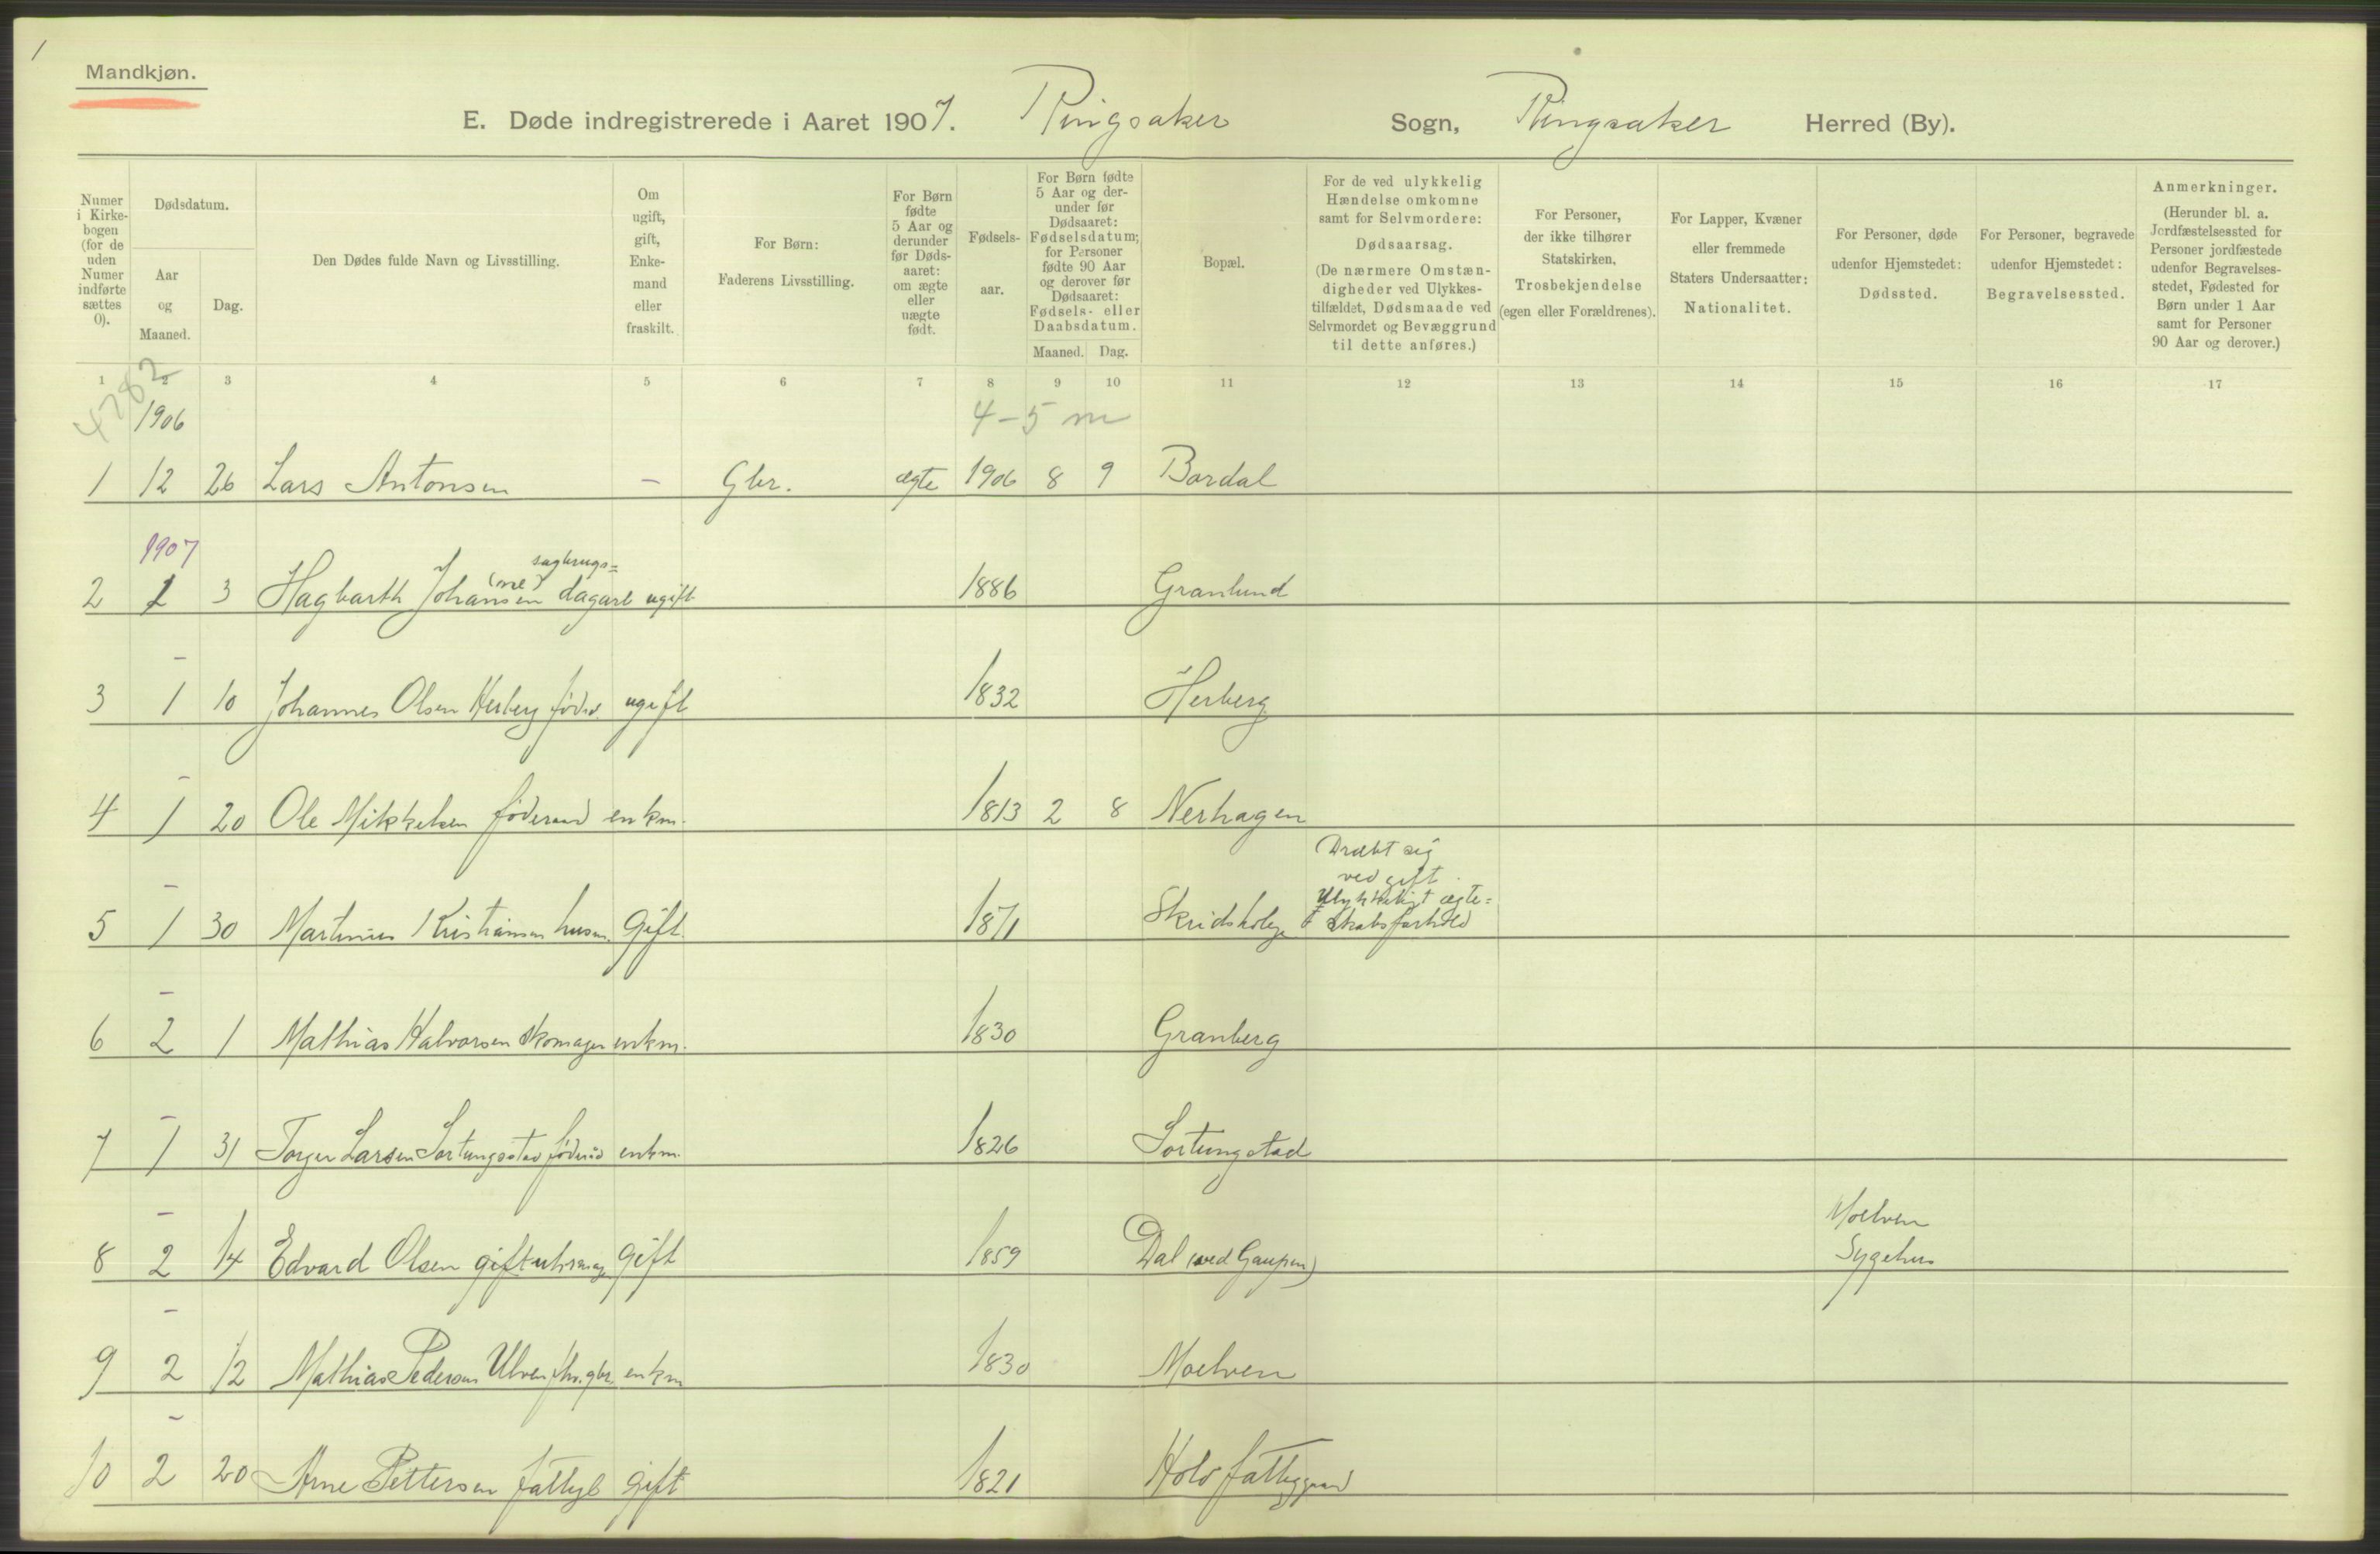 1
Mandkjøn.
E. Døde indregistrerede i Aaret 1907. Ringsaker Sogn, Ringsaker Herred (By).
Numer i Kirkebogen (for de uden Numer indførte sættes 0).
Dødsdatum.
Aar og Maaned.
Dag.
Den Dødes fulde Navn og Livsstilling.
Om ugift, gift, Enkemand eller fraskilt.
For Børn: Faderens Livsstilling.
For Børn fødte 5 Aar og derunder før Dødsaaret: om ægte eller uægte født.
Fødselsaar.
For Børn fødte 5 Aar og derunder før Dødsaaret: Fødselsdatum; for Personer fødte 90 Aar og derover før Dødsaaret: Fødsels- eller Daabsdatum.
Maaned. Dag.
Bopæl.
For de ved ulykkelig Hændelse omkomne samt for Selvmordere: Dødsaarsag. (De nærmere Omstændigheder ved Ulykkestilfældet, Dødsmaade ved Selvmordet og Bevæggrund til dette anføres.)
For Personer, der ikke tilhører Statskirken, Trosbekjendelse (egen eller Forældrenes).
For Lapper, Kvæner eller fremmede Staters Undersaatter: Nationalitet.
For Personer, døde udenfor Hjemstedet: Dødssted.
For Personer, begravede udenfor Hjemstedet: Begravelsessted.
Anmerkninger. (Herunder bl. a. Jordfæstelsessted for Personer jordfæstede udenfor Begravelsesstedet, Fødested for Børn under 1 Aar samt for Personer 90 Aar og derover.)
1 2 3 4 5 6 7 8 9 10 11 12 13 14 15 16 17
4282
1906 4-5 m
1 12 26 Lars Antonsen – Gbr. ægte 1906 8 9 Bardal
1907
sagbrugs=
2 1 3 Hagbarth Johansen dagarb ugift 1886 Granlund
–
3 1 10 Johannes Olsen Herberg føderd. ugift 1832 Herberg
–
4 1 20 Ole Mikkelsen føderaad enkm. 1813 2 8 Nerhagen
Dræbt sig
ved gift.
– Ulykkeligt ægte=
5 1 30 Martinius Kristiansen husm. Gift 1871 Skridshol skabsforhold
–
6 2 1 Mathias Halvorsen Skomager enkm. 1830 Granberg
–
7 1 31 Torger Larsen Sortungstad føderåd enkm. 1826 Sortungstad
– Moelven
8 2 14 Edvard Olsen gift uhrmager Gift 1859 Dal (ved Gaupen) Sygehus
–
9 2 12 Mathias Pedersen Ulven fhv. gbr. enkm 1830 Moelven
–
10 2 20 Arne Pettersen fattigl Gift 1821 Holo fattiggaard